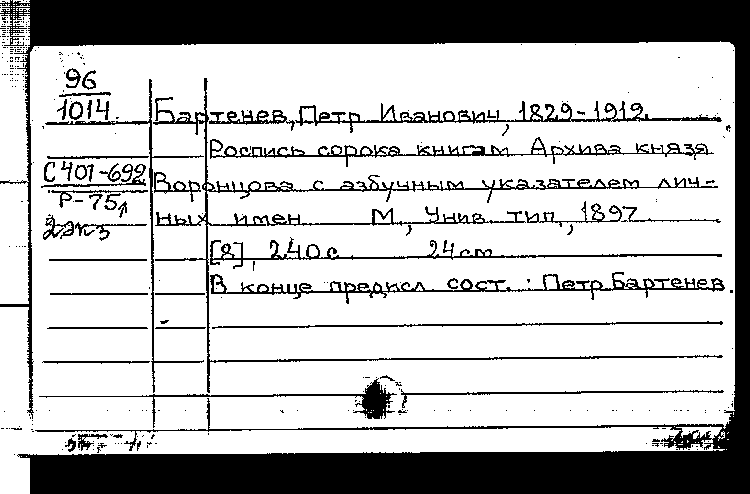 96
1014
Бартенев, Петр Иванович, 1829-1912.
Роспись сорока книгам Архива князя
С401-692
Воронцова с азбучным указателем лич-
Р-75
ных имен М., Унив. тип., 1897
2экз
[2], 240с. 24см
В конце предисл. сост.: Петр Бартенев.